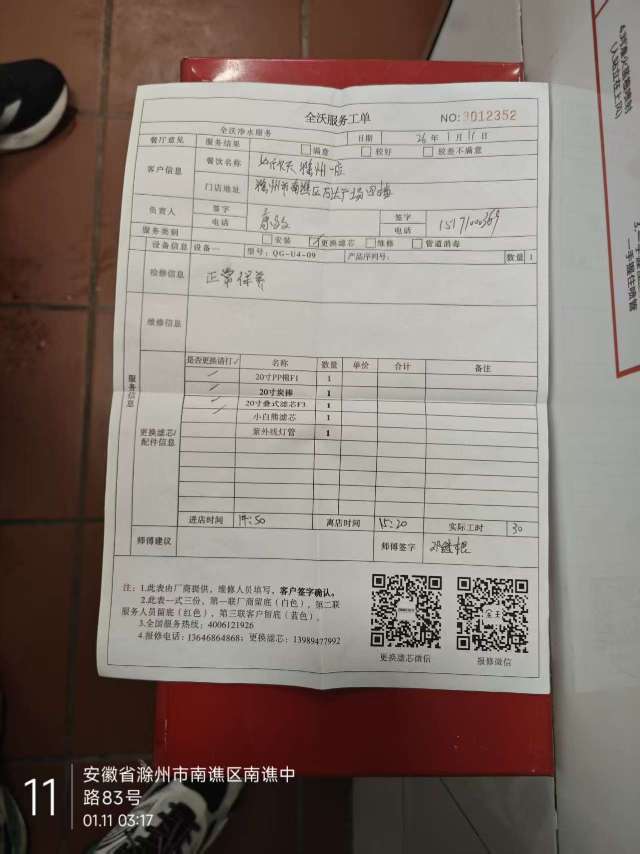 全沃服务工单
NO:3012352
全沃净水服务 日期 26年1月11日
餐厅意见 服务结果 满意 较好 较差不满意
客户信息 餐饮名称 滁州一店
门店地址 滁州市南谯区
负责人 签字 签字
电话 电话
服务类别 安装 ✓更换滤芯 维修 管道消毒
设备信息 设备一 型号: QG-U4-09 产品序列号: 数量 1
检修信息 正常保养
维修信息
服务信息
更换滤芯/配件信息
是否更换请打✓ 名称 数量 单价 合计 备注
20寸PP棉F1 1
20寸炭棒 1
20寸叠式滤芯F3 1
小白熊滤芯 1
紫外线灯管 1
进店时间 14:50 离店时间 15:20 实际工时 30
师傅建议 师傅签字
注: 1.此表由厂商提供, 维修人员填写, 客户签字确认。
2.此表一式三份, 第一联厂商留底(白色), 第二联
服务人员留底(红色), 第三联客户留底(蓝色)。
3.全国服务热线: 4006121926
4.报修电话: 13646864868; 更换滤芯: 13989477992
更换滤芯微信
报修微信
11
安徽省滁州市南谯区南谯中
路83号
01.11 03:17